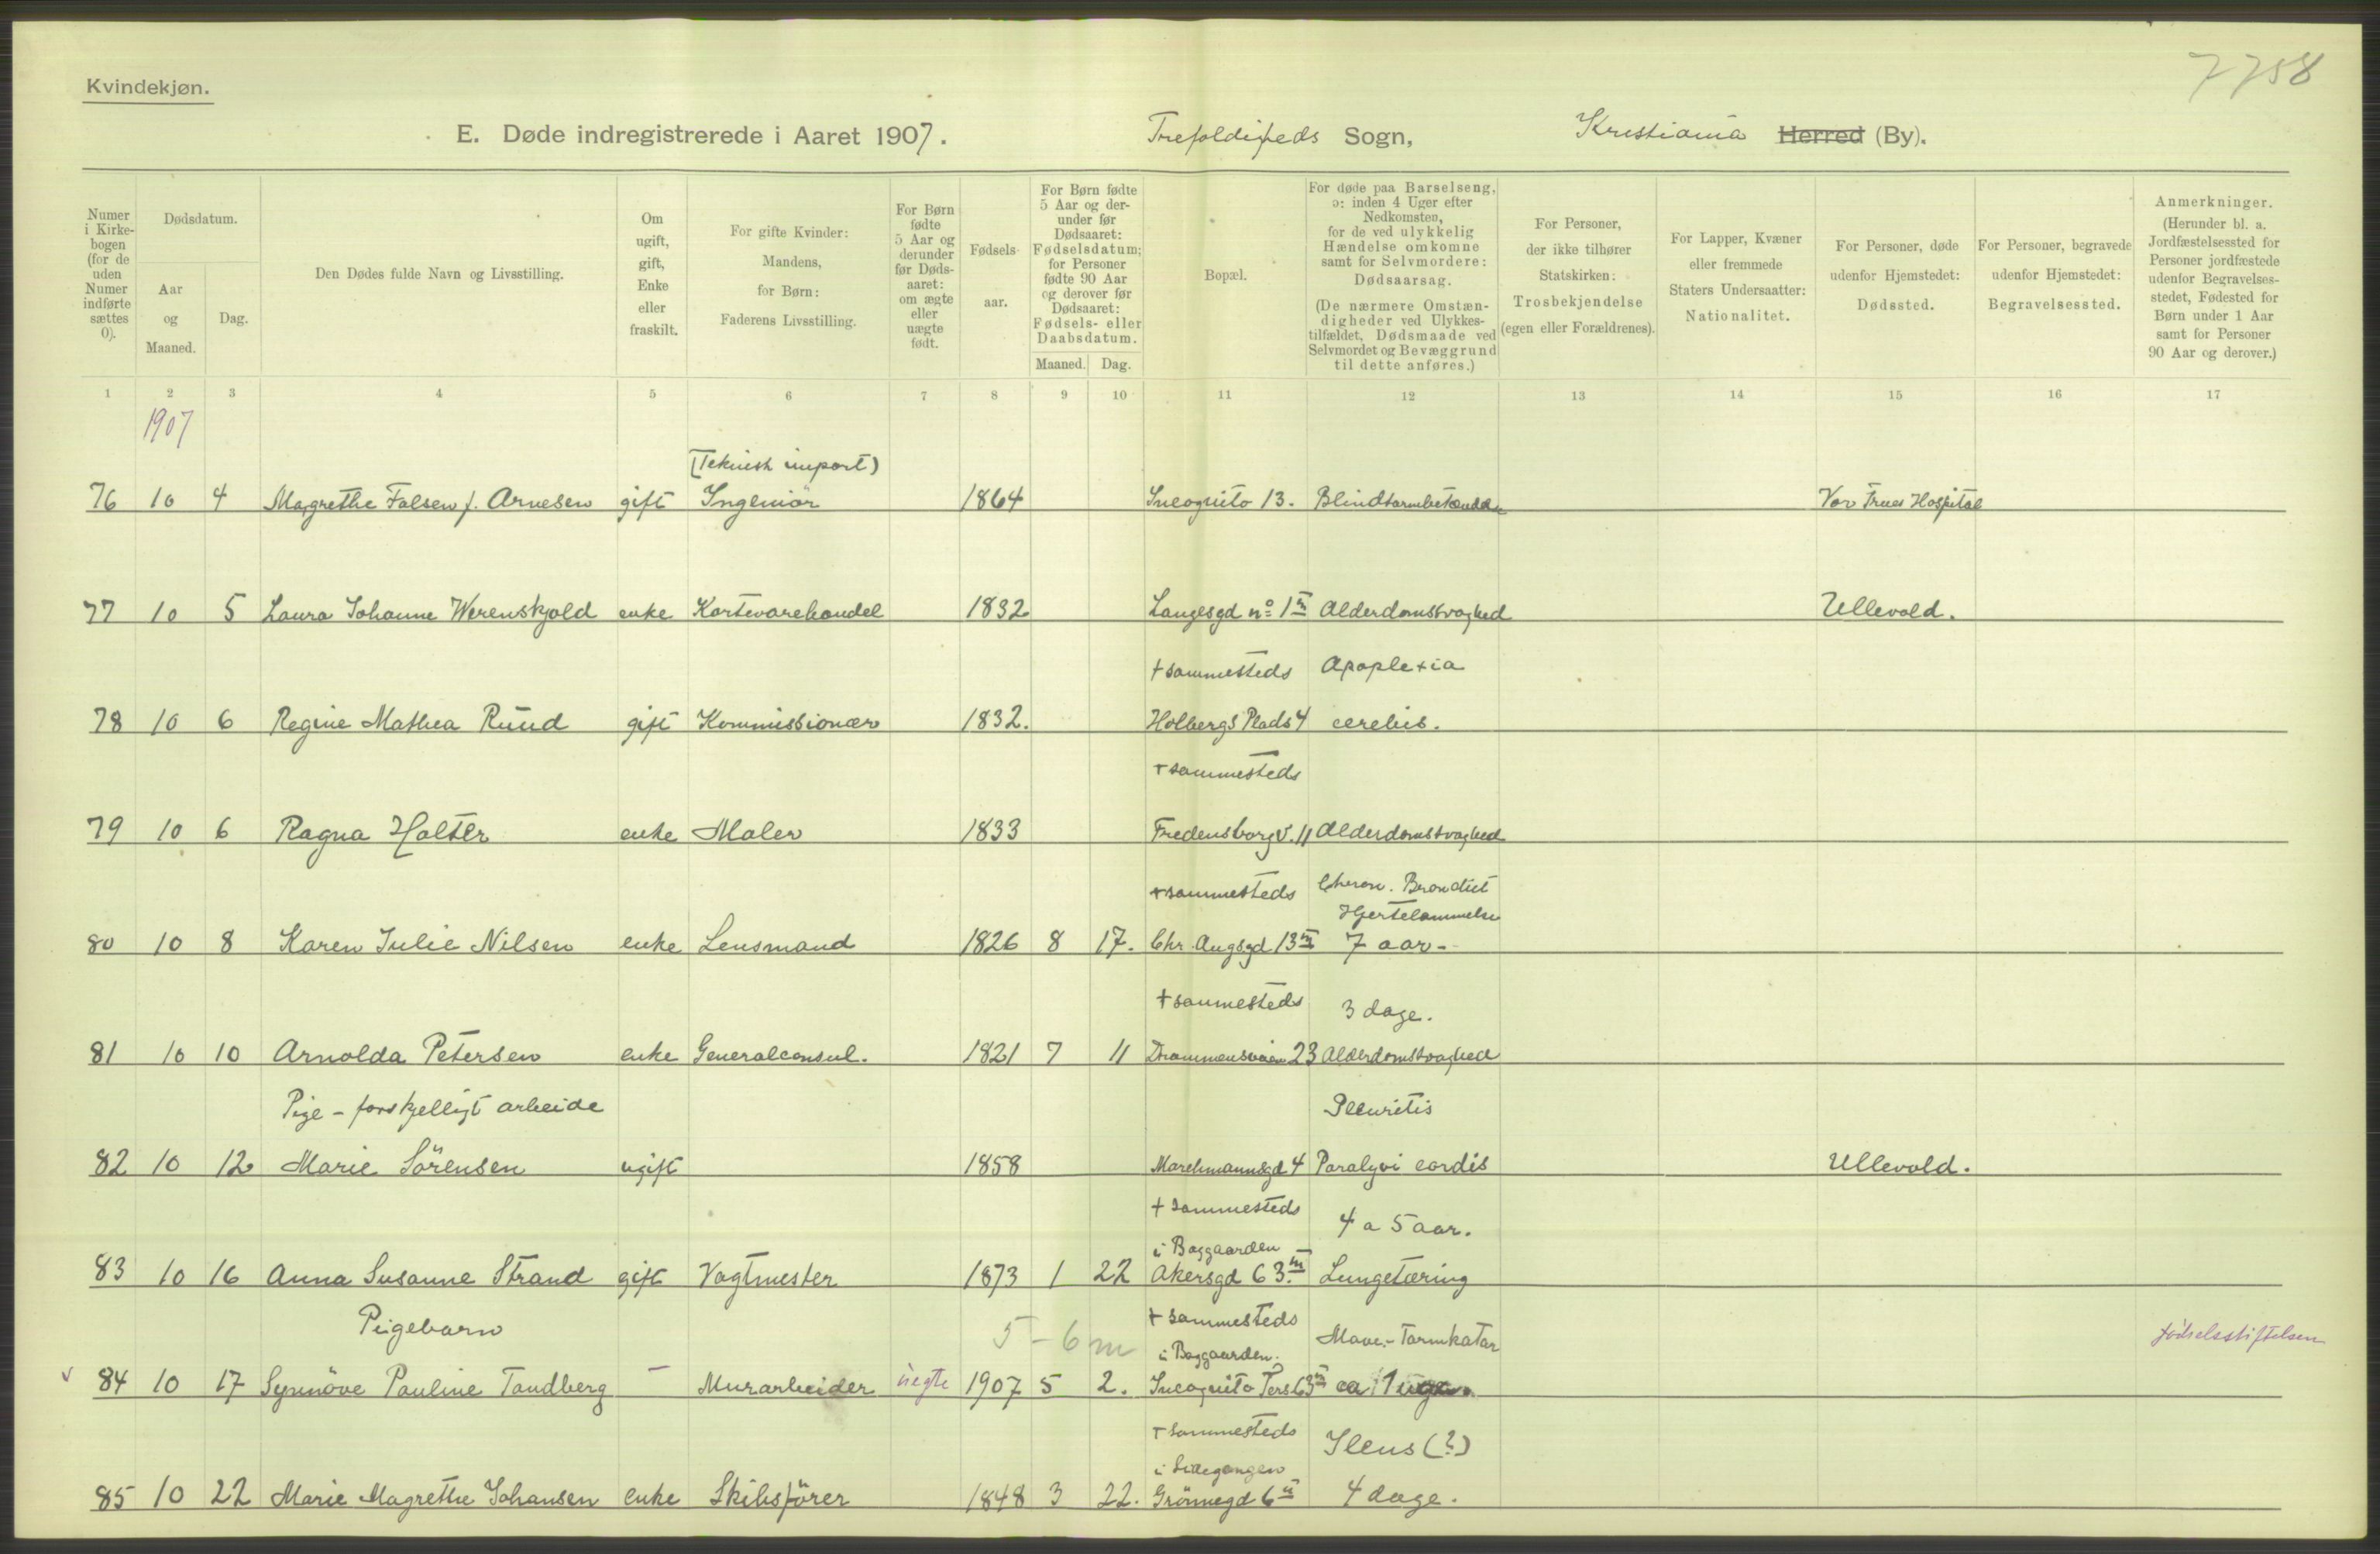 Kvindekjøn.
7758
E. Døde indregistrerede i Aaret 1907. Trefoldigheds Sogn, Kristiania Herred (By).
Numer i Kirke-bogen (for de uden Numer indførte sættes 0).
Dødsdatum.
Aar og Maaned.
Dag.
Den Dødes fulde Navn og Livsstilling.
Om ugift, gift, Enke eller fraskilt.
For gifte Kvinder: Mandens, for Børn: Faderens Livsstilling.
For Børn fødte 5 Aar og derunder før Døds-aaret: om ægte eller uægte født.
Fødsels-aar.
For Børn fødte 5 Aar og der-under før Dødsaaret: Fødselsdatum; for Personer fødte 90 Aar og derover før Dødsaaret: Fødsels- eller Daabsdatum.
Maaned. Dag.
Bopæl.
For døde paa Barselseng, ɔ: inden 4 Uger efter Nedkomsten, for de ved ulykkelig Hændelse omkomne samt for Selvmordere: Dødsaarsag. (De nærmere Omstæn-digheder ved Ulykkes-tilfældet, Dødsmaade ved Selvmordet og Bevæggrund til dette anføres.)
For Personer, der ikke tilhører Statskirken: Trosbekjendelse (egen eller Forældrenes).
For Lapper, Kvæner eller fremmede Staters Undersaatter: Nationalitet.
For Personer, døde udenfor Hjemstedet: Dødssted.
For Personer, begravede udenfor Hjemstedet: Begravelsessted.
Anmerkninger. (Herunder bl. a. Jordfæstelsessted for Personer jordfæstede udenfor Begravelses-stedet, Fødested for Børn under 1 Aar samt for Personer 90 Aar og derover.)
1 2 3 4 5 6 7 8 9 10 11 12 13 14 15 16 17
1907
(Teknish import)
76 10 4 Magrethe Falsen f. Arnesen gift Ingeniör 1864 Incognito 13. Blindtarmbetændelse Vor Frues Hospital
77 10 5 Laura Johanne Werenskjold enke Kortevarehandel 1832 Langesgd no 1 III Alderdomssvaghed Ullevold.
+ sammesteds Apoplexia
78 10 6 Regine Mathea Ruud gift Kommissionær 1832. Holbergs Plads 4 cerebis.
+ sammesteds
79 10 6 Ragna Holter enke Maler 1833 Fredensborgv. 11 Alderdomssvaghed
+ sammesteds Chron. Bronchit
Hjertelammelse
80 10 8 Karen Julie Nilsen enke Lensmand 1826 8 17. Chr. Augsgd 13 III 7 aar -
+ sammesteds 3 dage.
81 10 10 Arnolda Petersen enke Generalconsul. 1821 7 11 Drammensveien 23 Alderdomssvaghed
Pige - forskjelligt arbeide Pleuritis
82 10 12 Marie Sörensen ugift 1858 4 Paralyri cordis Ullevold.
+ sammesteds 4 a 5 aar.
i Baggaarden
83 10 16 Anna Susanne Strand gift Vagtmester 1873 1 22 Akersgd 63. III Lungetæring
Pigebarn 5 - 6 m + sammesteds Mave.- Tarmkatar födselsstiftelsen
i Baggaarden.
v 84 10 17 Synnöve Pauline Tandberg — Murarbeider uegte 1907 5 2. Incognito Ters 63 III ca 1 uge.
+ sammesteds Ileus (?)
i Sidegangen
85 10 22 Marie Magrethe Johansen enke Skibsförer 1848 3 22. Grönnegd 6 II 4 dage.